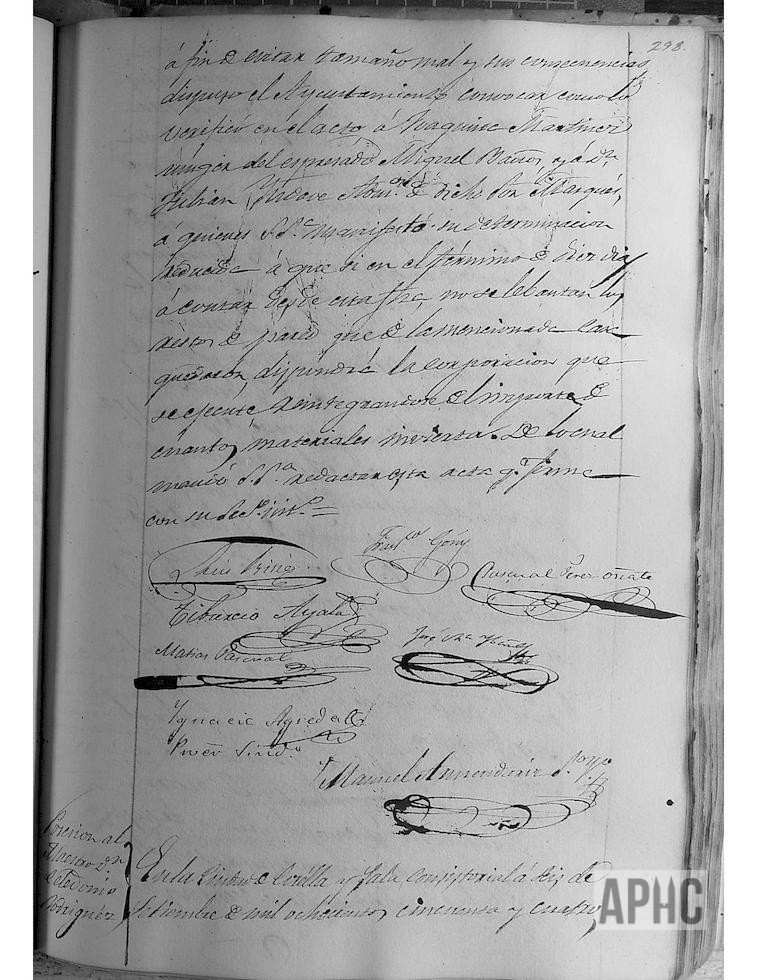 298.
á fin de evitar tamaño mal y sus consecuencias,
dispuso el Ayuntamiento convocar como lo
verificó en el acto á Joaquina Martinez
muger del espresado Miguel Baños, y á Dn
Julian Admor. de dicho Sor. Marqués,
á quienes S.Sa. manifestó su determinacion
reducida á que si en el término de diez dias
á contar desde esta fha, no se lebantan los
restos de pared que de la mencionada casa
quedaron, dispondrá la corporacion que
se ejecute reintegrandose del importe de
cuantos materiales invierta. De lo cual
mandó S.Sa. redactar esta acta q.e firma
con su Secret.o
Franco Goñi
Pascual Perez Oñate
Tiburcio Ayala
Matias Pascual
Ignacio Agreda
Procr Sindo.
Manuel Armendariz Srio
Posesion al
Maestro Dn
Rodriguez
En la Ciudad de Corella y Sala consistorial á seis de
Setiembre de mil ochocientos cincuenta y cuatro,
APHC